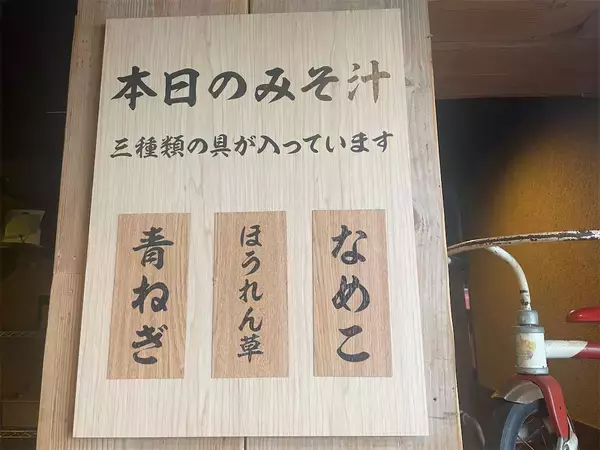 本日のみそ汁
三種類の具が入っています
なめこ
ほうれん草
青ねぎ